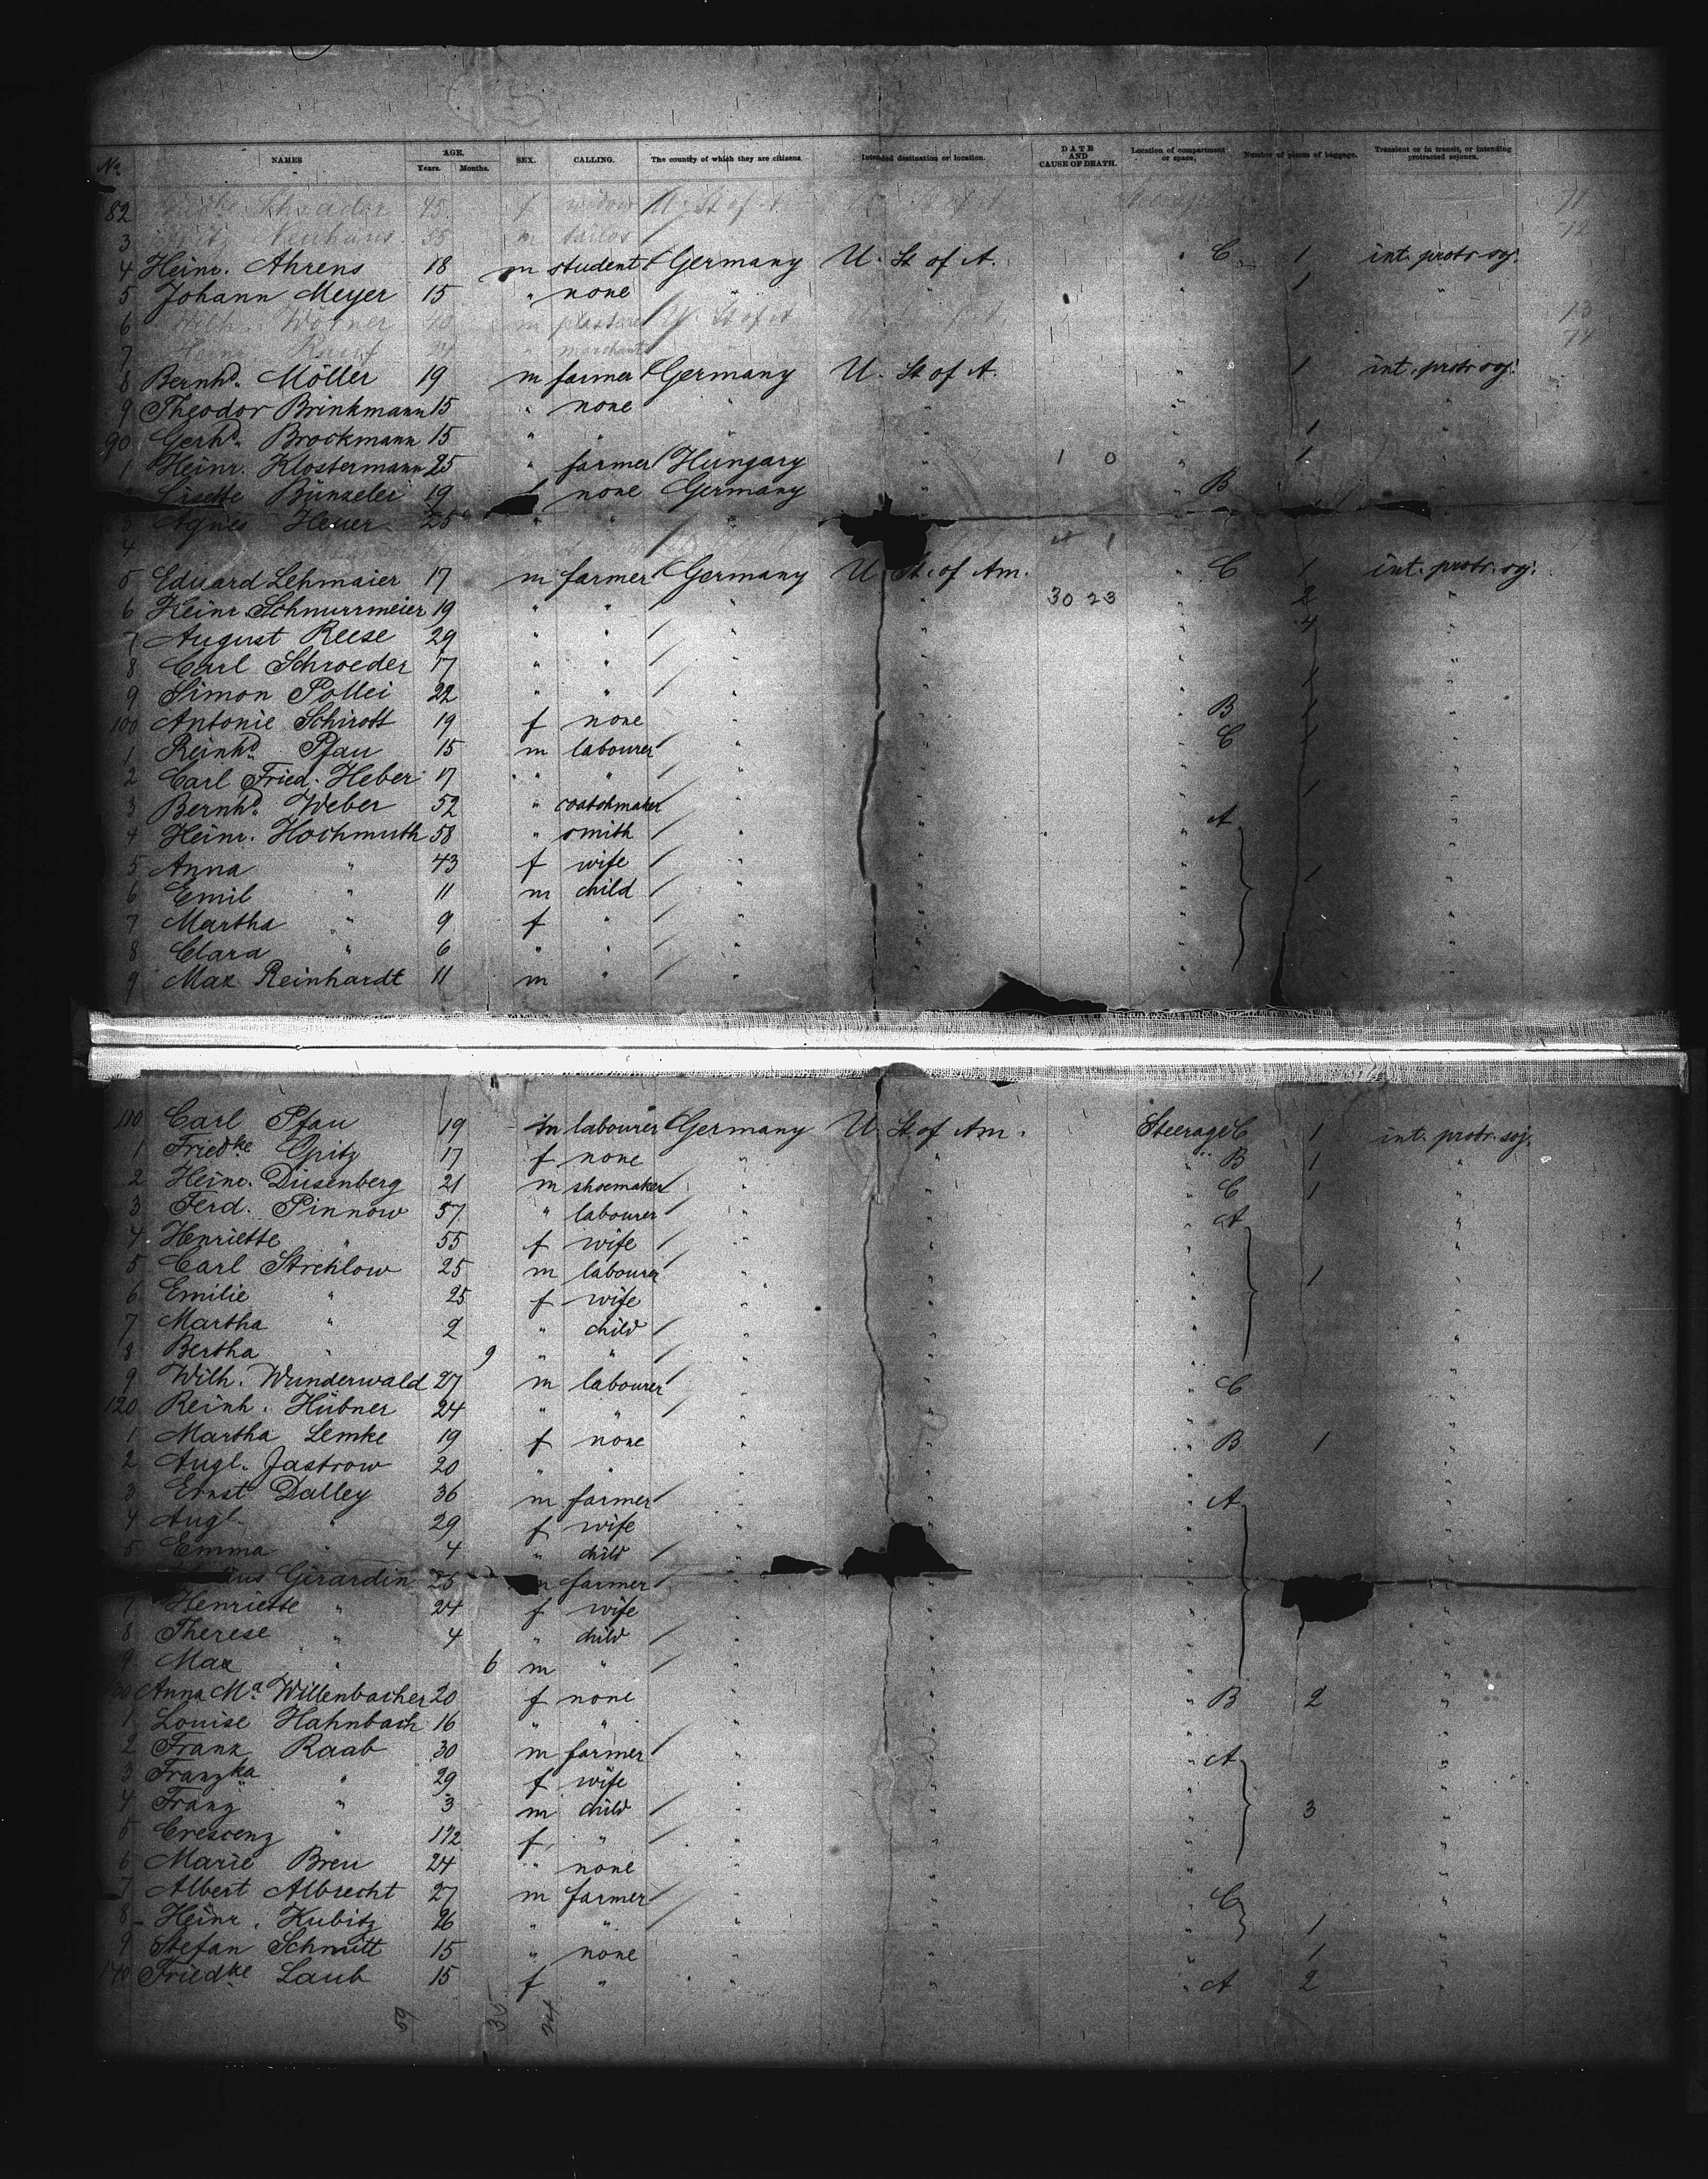 No. NAMES AGE. Years. Months. SEX. CALLING. The country of which they are citizens. Intended destination or location. DATE AND CAUSE OF DEATH. Location of compartment or space. Number of pieces of baggage. Transient or in transit, or intending protracted sojourn.
82 Schrader 45 f widow U. St of A 71
3 Fritz Neuhaus 35 m tailor 72
4 Heinr. Ahrens 18 m student Germany U. St of A. " C 1 int. protr. soj.
5 Johann Meyer 15 " none " " " 1 "
6 Wilh. Wörner 40 m plasterer U. St of A 73
7 " merchant 74
8 Bernhd. Möller 19 m farmer Germany U. St of A. 1 int. protr soj.
9 Theodor Brinkmann 15 " none " " " "
90 Gerhd. Brockmann 15 " " " " " 1 "
1 Heinr. Klostermann 25 " farmer Hungary " 1 0 " 1
Lisette Bünzeler 19 f none Germany B
3 Agnes Heuer 25 " " "
4 4 1
5 Eduard Lehmaier 17 m farmer Germany U St. of Am. " C 1 int. protr. soj.
6 Heinr. Schnurrmeier 19 " " " " 30 23 " 2 "
7 August Reese 29 " " " " " 4
8 Carl Schroeder 17 " " " " " "
9 Simon Pollei 22 " " " " " 1 "
100 Antonie Schirott 19 f none " " " B 1 "
1 Reinhd. Pfau 15 m labourer " " " C 1 "
2 Carl Fried. Heber 17 " " " " " "
3 Bernhd. Weber 52 " coatchmaker " " " 1 "
4 Heinr. Hochmuth 58 " smith " " " A "
5 Anna " 43 f wife " " " 1 "
6 Emil " 11 m child " " " "
7 Martha " 9 f " " " " "
8 Clara " 6 " " " " " "
9 Max Reinhardt 11 m " " " " "
110 Carl Pfau 19 m labourer Germany U. St. of Am. Steerage C 1 int. protr. soj.
1 Friedke Opitz 17 f none " " " B 1 "
2 Heinr. Düsenberg 21 m shoemaker " " " C 1 "
3 Ferd. Pinnow 57 " labourer " " " A "
4 Henriette " 55 f wife " " " "
5 Carl Strehlow 25 m labourer " " " 1 "
6 Emilie " 25 f wife " " " "
7 Martha " 2 " child " " " "
8 Bertha " 9 " " " " " "
9 Wilh. Wunderwald 27 m labourer " " " C "
120 Reinh. Hübner 24 " " " " " "
1 Martha Lemke 19 f none " " " B 1 "
2 Augl. Jastrow 20 " " " " " "
3 Ernst Dalley 36 m farmer " " " A "
4 Augl. " 29 f wife " " "
5 Emma " 4 " child " " "
Girardin 25 m farmer " "
7 Henriette " 24 f wife " " " "
8 Therese " 4 " child " " " "
9 Max " 6 m " " " " "
130 Anna Ma. Willenbacher 20 f none " " " B 2 "
1 Louise Hahnbach 16 " " " " " "
2 Franz Raab 30 m farmer " " " A "
3 Franzka " 29 f wife " " " "
4 Franz " 3 m child " " " 3 "
5 Crescenz " 1 1/2 f " " " " "
6 Marie Breu 24 " none " " " "
7 Albert Albrecht 27 m farmer " " " C "
8 Heinr. Kubitz 26 " " " " " 1 "
9 Stefan Schmitt 15 " none " " " 1 "
140 Friedke Laub 15 f " " " " A 2 "
59 35 24